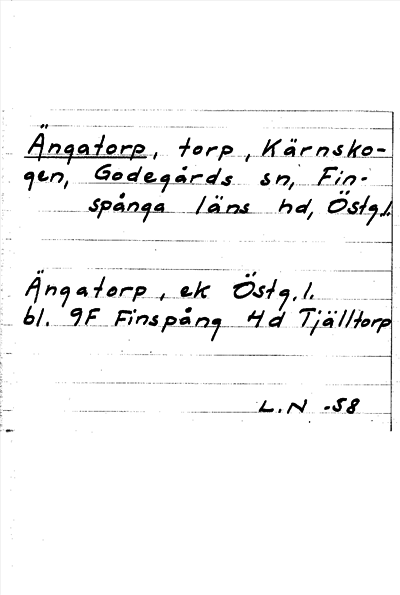 Ängatorp, torp, Kärnsko-
gen, Godegårds sn, Fin-
spånga läns hd, Östg.l.
Ängatorp, ek Östg.l.
bl. 9F Finspång 4d Tjälltorp
L.N -58